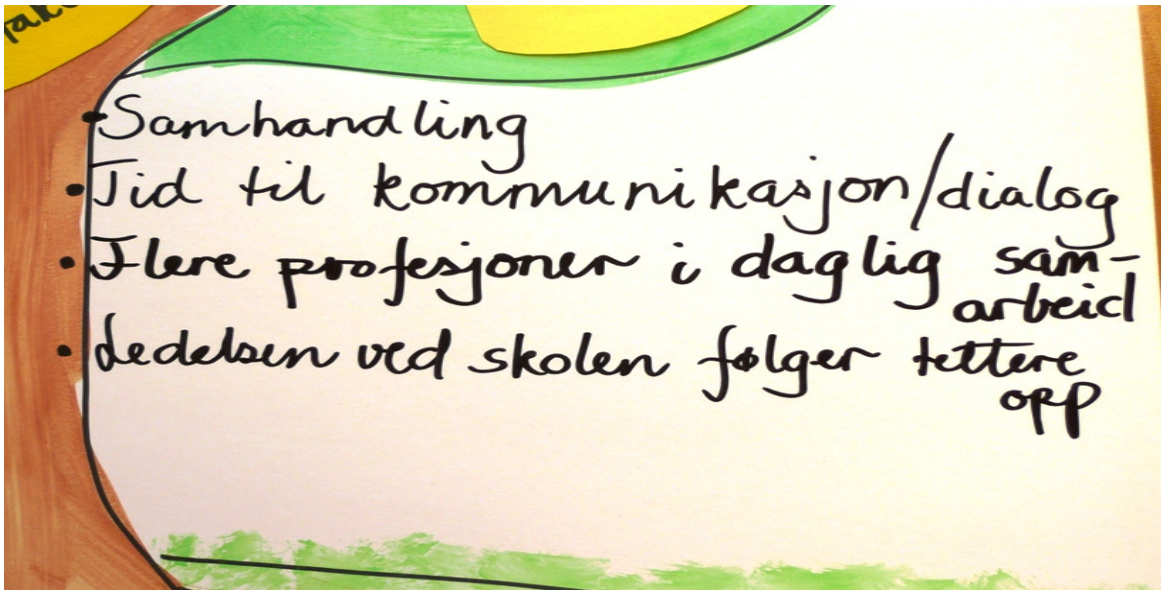 • Samhandling
• Tid til kommunikasjon/dialog
• Flere profesjoner i daglig sam-
arbeid
• Ledelsen ved skolen følger tettere
opp